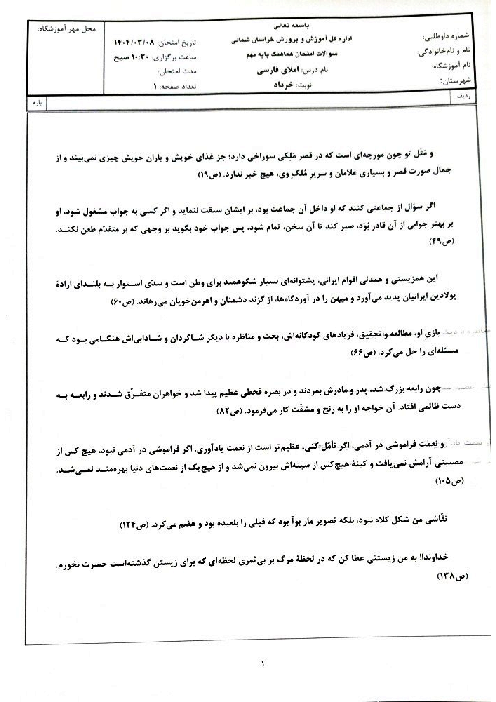 باسمه تعالی
اداره کل آموزش و پرورش خراسان شمالی
سوالات امتحان هماهنگ پایه نهم
نام درس: املای فارسی
نوبت: خرداد
شماره داوطلبی:
نام و نام‌خانوادگی:
نام آموزشگاه:
شهرستان:
تاریخ امتحان: ۱۴۰۴/۰۳/۰۸
ساعت برگزاری: ۱۰:۳۰ صبح
مدت امتحان:
تعداد صفحه: ۱
محل مهر آموزشگاه:
ردیف
بارم
و عقل تو چون مورچه‌ای است که در قصر مَلِکی سوراخی دارد؛ جز غذای خویش و یاران خویش چیزی نمی‌بیند و از
جمال صورت قصر و بسیاری غلامان و سریر مُلک وی، هیچ خبر ندارد. (ص۱۹)
اگر سؤال از جماعتی کنند که او داخل آن جماعت بود، بر ایشان سبقت ننماید و اگر کسی به جواب مشغول شود، او
بر بهتر جوابی از آن قادر بُود، صبر کند تا آن سخن، تمام شود، پس جواب خود بگوید بر وجهی که بر متقدّم طعن نکند.
(ص۴۹)
این همزیستی و همدلی اقوام ایرانی، پشتوانه‌ای بسیار شکوهمند برای وطن است و سدّی استوار به بلندای ارادهٔ
پولادین ایرانیان پدید می‌آورد و میهن را در آوردگاه‌ها، از گزند دشمنان و اهرمن‌خویان می‌رهاند. (ص۶۰)
بازی او، مطالعه و تحقیق، فریادهای کودکانه‌اش، بحث و مناظره با دیگر شاگردان و شادابی‌اش هنگامی بود که
مسئله‌ای را حل می‌کرد. (ص۶۶)
چون رابعه بزرگ شد، پدر و مادرش بمردند و در بصره قحطی عظیم پیدا شد و خواهران متفرّق شدند و رابعه به
دست ظالمی افتاد. آن خواجه او را به رنج و مشقّت کار می‌فرمود. (ص۸۲)
و نعمت فراموشی در آدمی، اگر تأمّل کنی، عظیم‌تر است از نعمت یادآوری. اگر فراموشی در آدمی نبود، هیچ کس از
مصیبتی آرامش نمی‌یافت و کینهٔ هیچ‌کس از سینه‌اش بیرون نمی‌شد و از هیچ‌یک از نعمت‌های دنیا بهره‌مند نمی‌شد.
(ص۱۰۵)
نقّاشی من شکل کلاه نبود، بلکه تصویر مار بوآ بود که فیلی را بلعیده بود و هضم می‌کرد. (ص۱۲۴)
خداوندا! به من زیستنی عطا کن که در لحظهٔ مرگ بر بی‌ثمری لحظه‌ای که برای زیستن گذشته‌است حسرت نخورم.
(ص۱۳۸)
۱